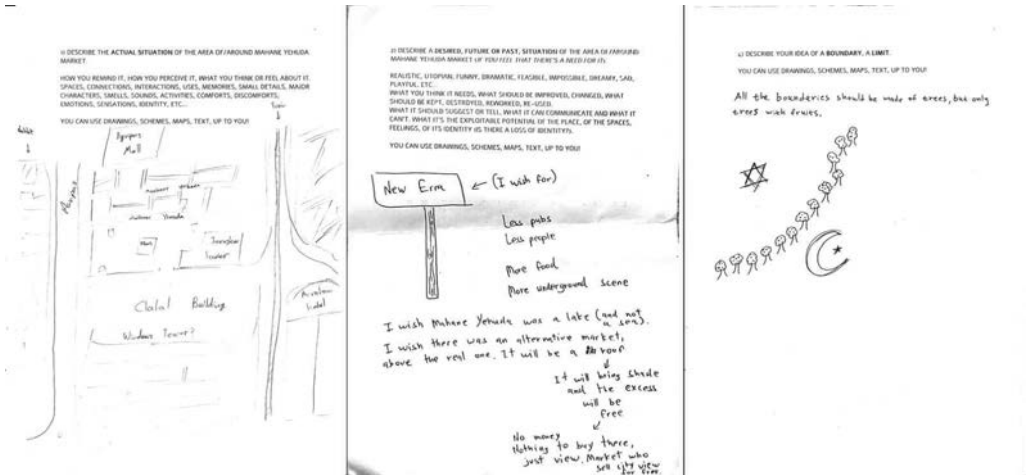 a) DESCRIBE THE ACTUAL SITUATION OF THE AREA OF/AROUND MAHANE YEHUDA
MARKET
HOW YOU REMIND IT, HOW YOU PERCEIVE IT, WHAT YOU THINK OR FEEL ABOUT IT.
SPACES, CONNECTIONS, INTERACTIONS, USES, MEMORIES, SMALL DETAILS, MAJOR
CHARACTERS, SMELLS, SOUNDS, ACTIVITIES, COMFORTS, DISCOMFORTS,
EMOTIONS, SENSATIONS, IDENTITY, ETC...
YOU CAN USE DRAWINGS, SCHEMES, MAPS, TEXT, UP TO YOU!
Mall
Yehuda
Tower
Clalal Building
Windows Tower?
Hotel
b) DESCRIBE A DESIRED, FUTURE OR PAST, SITUATION OF THE AREA OF/AROUND
MAHANE YEHUDA MARKET (IF YOU FEEL THAT THERE'S A NEED FOR IT).
REALISTIC, UTOPIAN, FUNNY, DRAMATIC, FEASIBLE, IMPOSSIBLE, DREAMY, SAD,
PLAYFUL, ETC...
WHAT YOU THINK IT NEEDS, WHAT SHOULD BE IMPROVED, CHANGED, WHAT
SHOULD BE KEPT, DESTROYED, REWORKED, RE-USED.
WHAT IT SHOULD SUGGEST OR TELL, WHAT IT CAN COMMUNICATE AND WHAT IT
CAN'T. WHAT IT'S THE EXPLOITABLE POTENTIAL OF THE PLACE, OF THE SPACES,
FEELINGS, OF ITS IDENTITY (IS THERE A LOSS OF IDENTITY?).
YOU CAN USE DRAWINGS, SCHEMES, MAPS, TEXT, UP TO YOU!
New Erra
(I wish for)
Less pubs
Less people
More food
More underground scene
I wish Mahane Yehuda was a lake (and not
a sea).
I wish there was an alternative market,
above the real one. It will be a roof
It will bring shade
and the excess
will be
free
No money
Nothing to buy there,
just view. Market who
sell city view
for free.
c) DESCRIBE YOUR IDEA OF A BOUNDARY, A LIMIT.
YOU CAN USE DRAWINGS, SCHEMES, MAPS, TEXT, UP TO YOU!
All the bounderies should be made of trees, but only
trees with fruits.